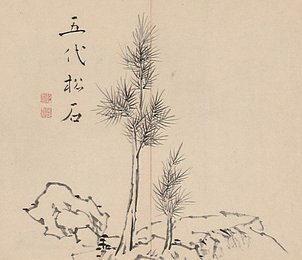 五代松石